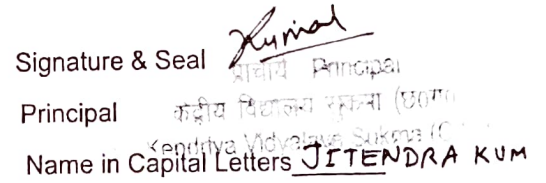 Signature & Seal Kumar
प्राचार्य Principal
Principal
केंद्रीय विद्यालय सुकना
Kendriya Vidyalaya Sukna
Name in Capital Letters JITENDRA KUM